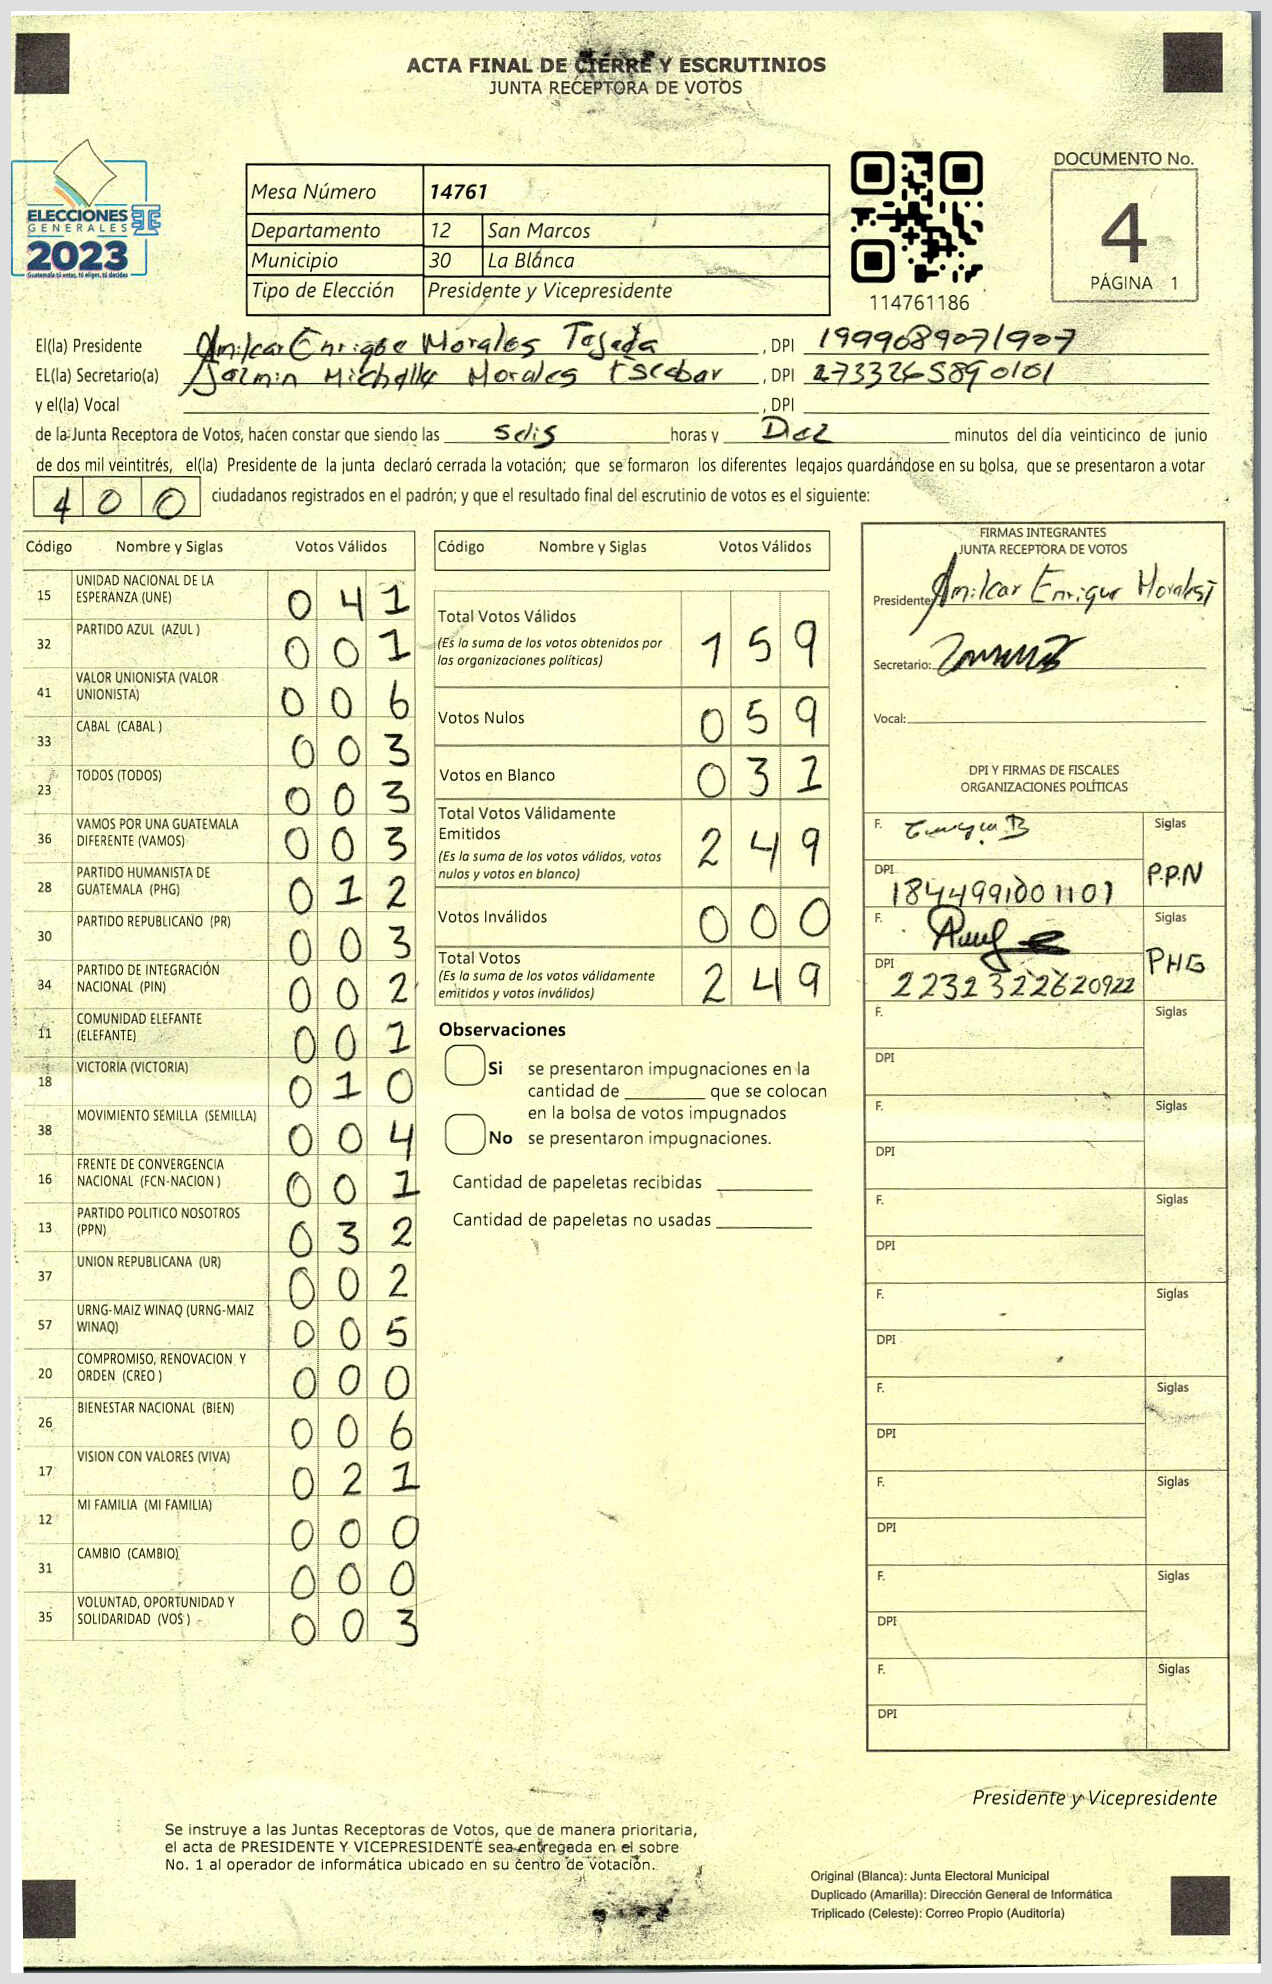 ACTA FINAL DE CIERRE Y ESCRUTINIOS
JUNTA RECEPTORA DE VOTOS
ELECCIONES
GENERALES
2023
Guatemala tú votas, tú eliges, tú decides
Mesa Número 14761
Departamento 12 San Marcos
Municipio 30 La Blanca
Tipo de Elección Presidente y Vicepresidente
114761186
DOCUMENTO No.
4
PÁGINA 1
El(la) Presidente Amilcar Enrique Morales Tejada, DPI 1999089071907
EL(la) Secretario(a) Jazmin Michelly Morales Escobar, DPI 2733265890101
y el(la) Vocal , DPI
de la Junta Receptora de Votos, hacen constar que siendo las seis horas y Diez minutos del día veinticinco de junio
de dos mil veintitrés, el(la) Presidente de la junta declaró cerrada la votación; que se formaron los diferentes legajos guardándose en su bolsa, que se presentaron a votar
400 ciudadanos registrados en el padrón; y que el resultado final del escrutinio de votos es el siguiente:
Código Nombre y Siglas Votos Válidos
15 UNIDAD NACIONAL DE LA ESPERANZA (UNE) 041
32 PARTIDO AZUL (AZUL ) 001
41 VALOR UNIONISTA (VALOR UNIONISTA) 006
33 CABAL (CABAL ) 003
23 TODOS (TODOS) 003
36 VAMOS POR UNA GUATEMALA DIFERENTE (VAMOS) 003
28 PARTIDO HUMANISTA DE GUATEMALA (PHG) 012
30 PARTIDO REPUBLICANO (PR) 003
34 PARTIDO DE INTEGRACIÓN NACIONAL (PIN) 002
11 COMUNIDAD ELEFANTE (ELEFANTE) 001
18 VICTORIA (VICTORIA) 010
38 MOVIMIENTO SEMILLA (SEMILLA) 004
16 FRENTE DE CONVERGENCIA NACIONAL (FCN-NACION ) 001
13 PARTIDO POLITICO NOSOTROS (PPN) 032
37 UNION REPUBLICANA (UR) 002
57 URNG-MAIZ WINAQ (URNG-MAIZ WINAQ) 005
20 COMPROMISO, RENOVACION Y ORDEN (CREO ) 000
26 BIENESTAR NACIONAL (BIEN) 006
17 VISION CON VALORES (VIVA) 021
12 MI FAMILIA (MI FAMILIA) 000
31 CAMBIO (CAMBIO) 000
35 VOLUNTAD, OPORTUNIDAD Y SOLIDARIDAD (VOS ) 003
Código Nombre y Siglas Votos Válidos
Total Votos Válidos 159
(Es la suma de los votos obtenidos por
las organizaciones políticas)
Votos Nulos 059
Votos en Blanco 031
Total Votos Válidamente
Emitidos 249
(Es la suma de los votos válidos, votos
nulos y votos en blanco)
Votos Inválidos 000
Total Votos 249
(Es la suma de los votos válidamente
emitidos y votos inválidos)
Observaciones
Si se presentaron impugnaciones en la
cantidad de que se colocan
en la bolsa de votos impugnados
No se presentaron impugnaciones.
Cantidad de papeletas recibidas
Cantidad de papeletas no usadas
FIRMAS INTEGRANTES
JUNTA RECEPTORA DE VOTOS
Presidente: Amilcar Enrique Morales T
Secretario:
Vocal:
DPI Y FIRMAS DE FISCALES
ORGANIZACIONES POLÍTICAS
F. Siglas
DPI 1844991001101 P.P.N
F. Siglas
DPI 2232322620922 PHG
F. Siglas
DPI
F. Siglas
DPI
F. Siglas
DPI
F. Siglas
DPI
F. Siglas
DPI
F. Siglas
DPI
F. Siglas
DPI
F. Siglas
DPI
Presidente y Vicepresidente
Se instruye a las Juntas Receptoras de Votos, que de manera prioritaria,
el acta de PRESIDENTE Y VICEPRESIDENTE sea entregada en el sobre
No. 1 al operador de informática ubicado en su centro de votación.
Original (Blanca): Junta Electoral Municipal
Duplicado (Amarilla): Dirección General de Informática
Triplicado (Celeste): Correo Propio (Auditoría)